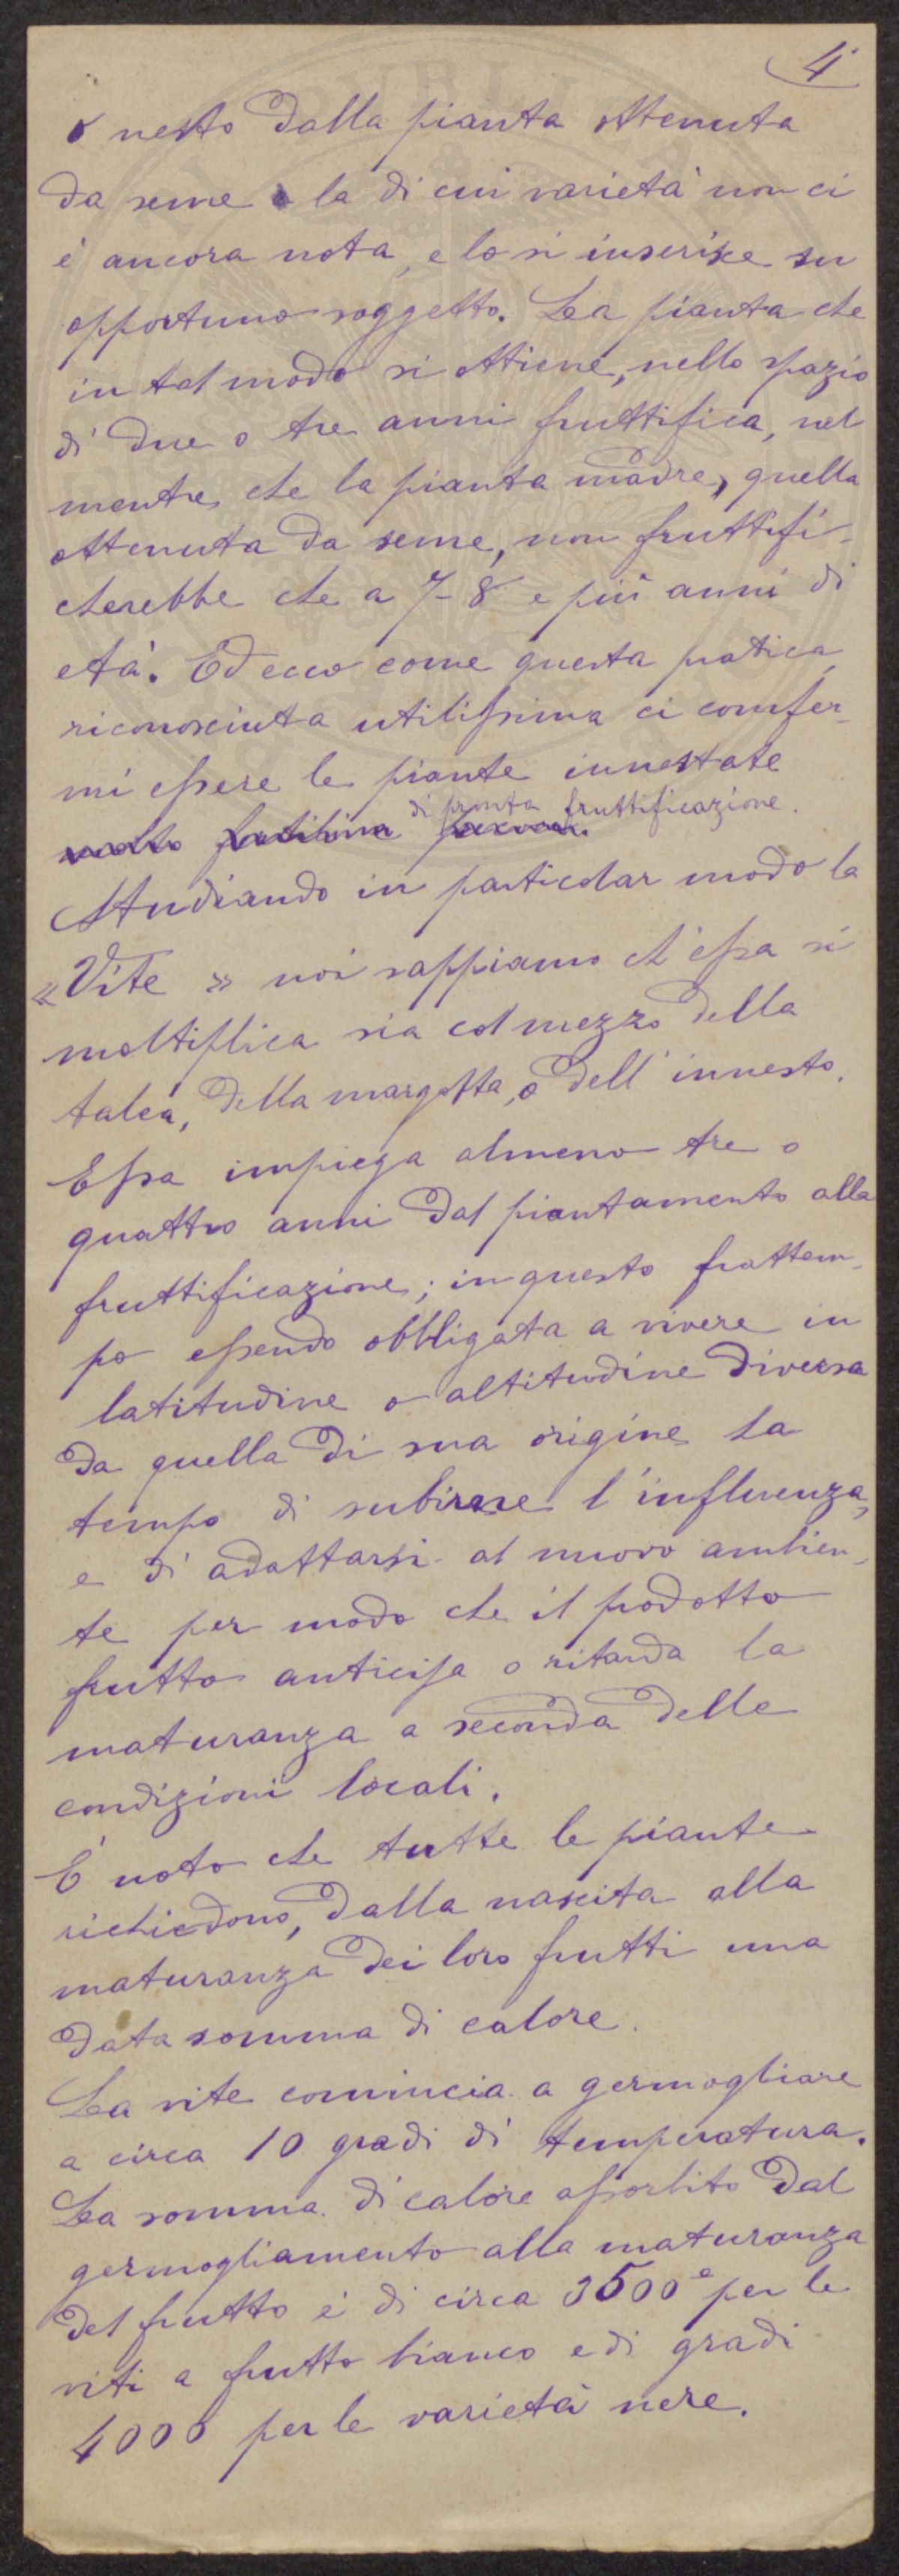 4
o nesto dalla pianta ottenuta
da seme la di cui varietà non ci
è ancora nota, e lo si inserisce su
opportuno soggetto. La pianta che
in tal modo si ottiene, nello spazio
di due o tre anni fruttifica, nel
mentre che la pianta madre, quella
ottenuta da seme, non fruttifi-
cherebbe che a 7-8 e più anni di
età. Ed ecco come questa pratica
riconosciuta utilissima ci confer-
mi essere le piante innestate
di pronta fruttificazione.
molto
Studiando in particolar modo la
"Vite" noi sappiamo ch'essa si
moltiplica sia col mezzo della
talea, della margotta, o dell'innesto.
Essa impiega almeno tre o
quattro anni dal piantamento alla
fruttificazione; in questo frattem-
po essendo obbligata a vivere in
latitudine o altitudine diversa
da quella di sua origine ha
tempo di subirne l'influenza,
e di adattarsi al nuovo ambien-
te per modo che il prodotto
frutto anticipa o ritarda la
maturanza a seconda delle
condizioni locali.
È noto che tutte le piante
richiedono, dalla nascita alla
maturanza dei loro frutti una
data somma di calore.
La vite comincia a germogliare
a circa 10 gradi di temperatura.
La somma di calore assorbito dal
germogliamento alla maturanza
del frutto è di circa 3500° per le
viti a frutto bianco e di gradi
4000 per le varietà nere.